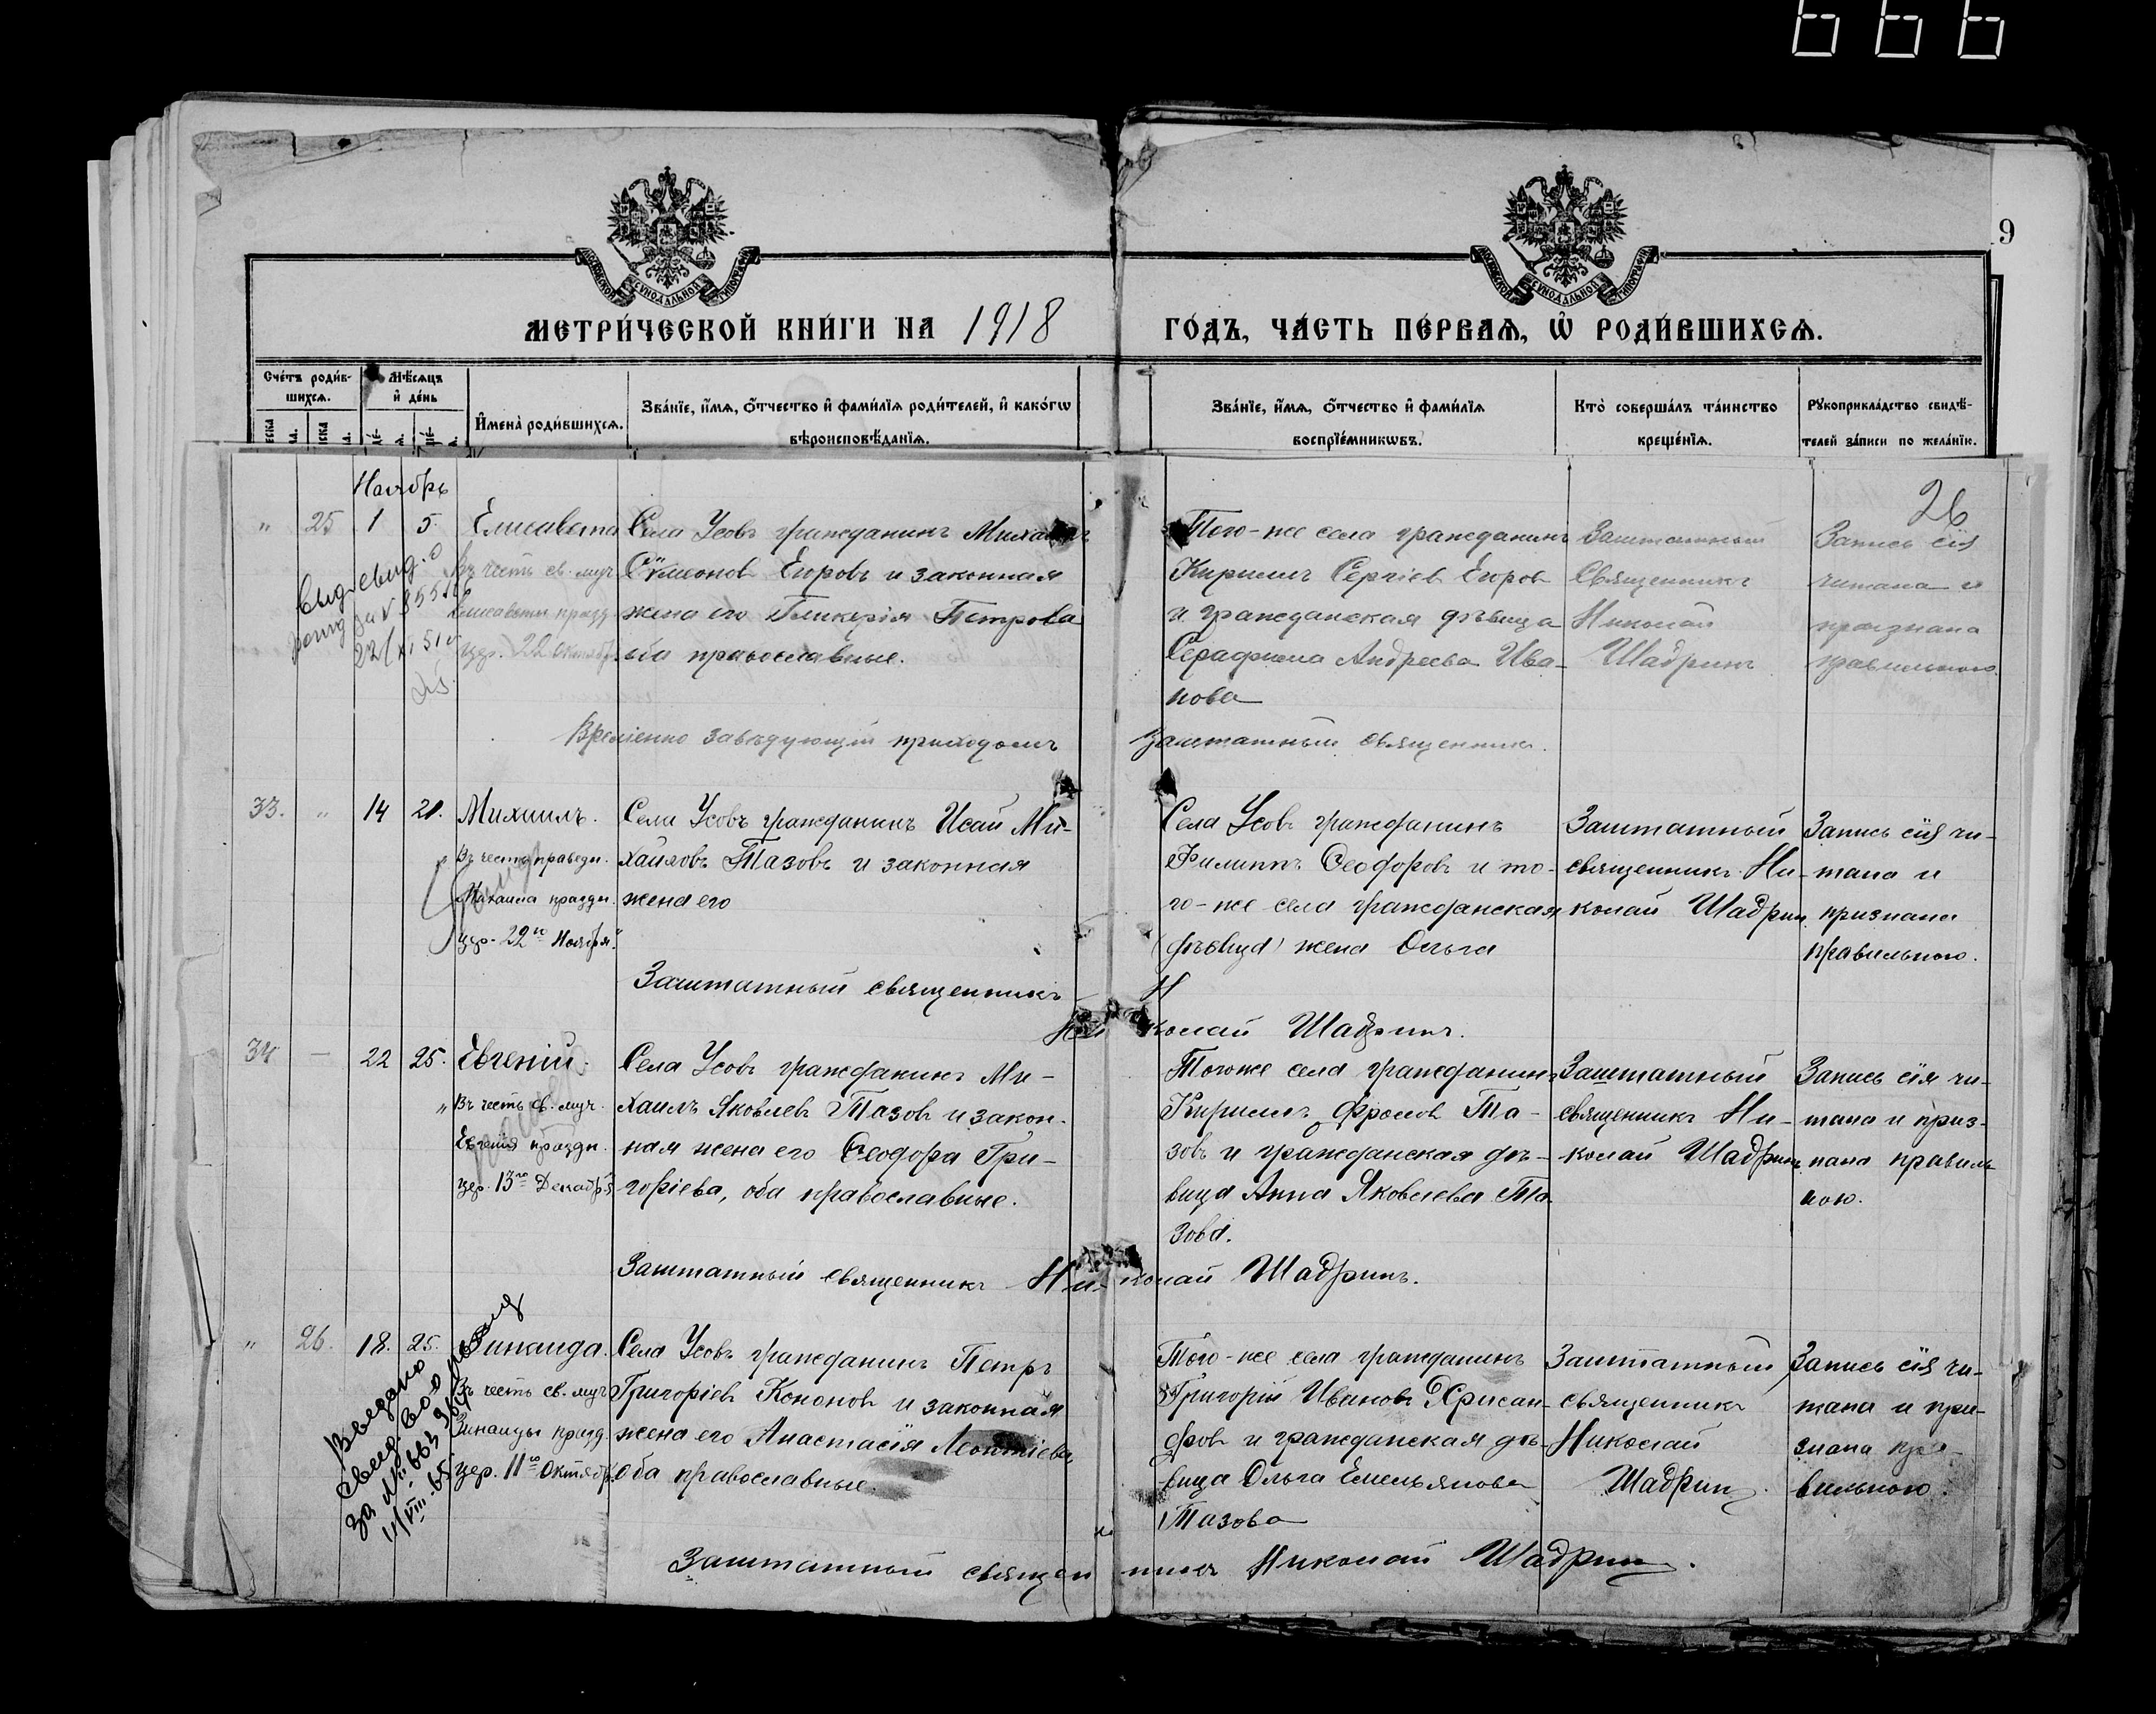 666
9
МЕТРИ́ЧЕСКОЙ КНИ́ГИ НА 1918
ГО́ДЪ, ЧА́СТЬ ПЕ́РВАѦ, Ѡ҆ РОДИ́ВШИХСѦ.
Сче́тъ роди́в-
шихсѧ.
Мѣ́сѧцъ
и҆ де́нь
И҆мена̀ роди́вшихсѧ.
Зва́нїе, и҆́мѧ, ѻ҆́тчество и҆ фами́лїѧ роди́телей, и҆ како́гѡ
вѣроисповѣ́данїѧ.
Зва́нїе, и҆́мѧ, ѻ҆́тчество и҆ фами́лїѧ
воспрїе́мникѡвъ.
Кто̀ соверша́лъ та́инство
креще́нїѧ.
Рꙋкоприкла́дство свидѣ́-
телей за́писи по жела́нїю.
26
Ноябрь
" 25 1 5. Елисавета
Въ честь св. муч.
Елисаветы празд.
цер. 22 Октябр.
Села Усовъ гражданинъ Михаилъ
Сѵмеоновъ Егоровъ и законная
жена его Гликерія Петрова
оба православные.
Того-же села гражданинъ
Кириллъ Сергіевъ Егоровъ
и гражданская дѣвица
Серафима Андреева Ива-
нова
Заштатный
Священникъ
Николай
Шадринъ
Запись сія
читана и
признана
правильною.
Временно завѣдующій приходомъ заштатный священникъ.
33. " 14 21. Михаилъ.
Въ честь праведн.
Михаила праздн.
цер. 22го Ноября.
Села Усовъ гражданинъ Исай Ми-
хайловъ Тазовъ и законная
жена его
Села Усовъ гражданинъ
Филиппъ Ѳеодоровъ и то-
го-же села гражданская
(дѣвица) жена Ольга
Заштатный
священникъ Ни-
колай Шадрин
Запись сія чи-
тана и
признана
правильною.
Заштатный священникъ Н
Николай Шадринъ.
34 — 22 25. Евгеній.
Въ честь св. муч.
Евгенія праздн.
цер. 13го Декабря
Села Усовъ гражданинъ Ми-
хаилъ Яковлевъ Тазовъ и закон-
ная жена его Ѳеодора Гри-
горіева, оба православные.
Тогоже села гражданинъ
Кириллъ Фроловъ Та-
зовъ и гражданская дѣ-
вица Анна Яковлева Та
зова.
Заштатный
священникъ Ни-
колай Шадринъ
Запись сія чи-
тана и приз-
нана правиль
ною.
Заштатный священникъ Николай Шадринъ.
" 26. 18. 25. Зинаида.
Въ честь св. муч
Зинаиды празд.
цер. 11го Октябр.
Села Усовъ гражданинъ Петръ
Григоріевъ Кононовъ и законная
жена его Анастасія Леонтіева
оба православные.
Того-же села гражданинъ
Григорій Ивановъ Хрисан-
фовъ и гражданская дѣ-
вица Ольга Емельянова
Тазова
Заштатный
священникъ
Николай
Шадринъ.
Запись сія чи-
тана и при-
знана пра-
вильною.
Заштатный священникъ Николай Шадринъ.